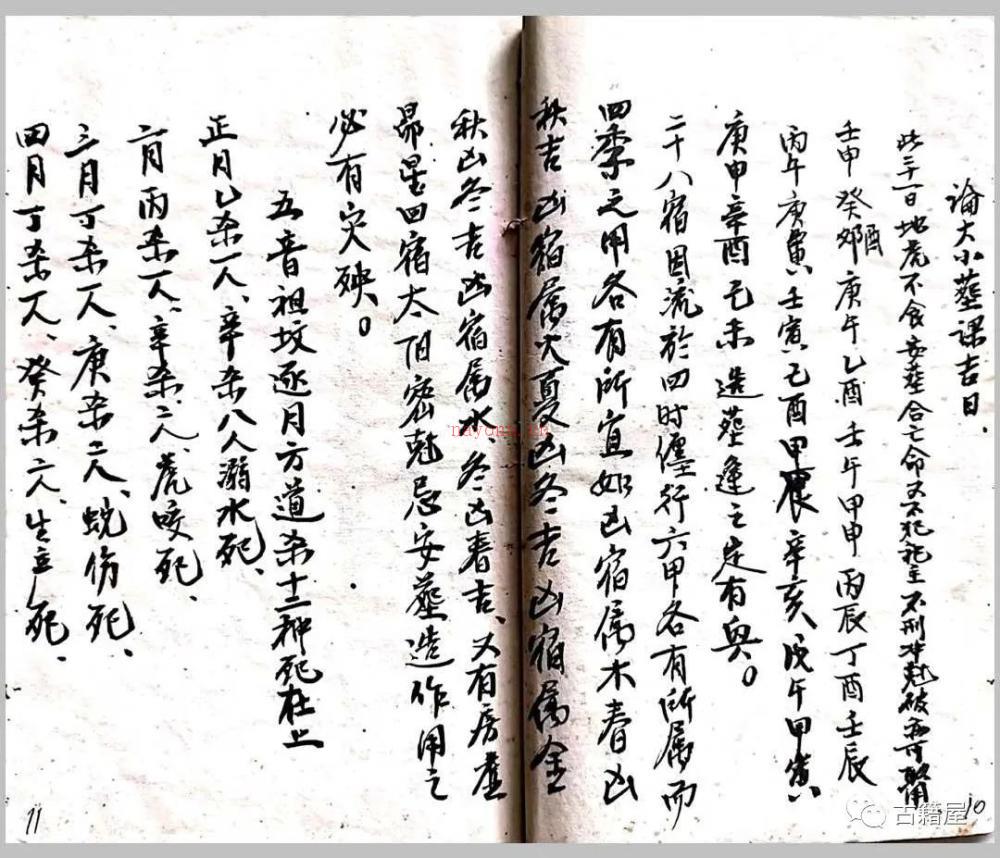 論大小塟课吉日.
此二十一日地虎不食安葬合亡命又不犯祀主不刑冲尅破亦可取用
壬申癸酉庚午乙酉壬午甲申丙辰丁酉壬辰
丙午庚寅壬寅己酉甲辰辛亥戊午甲寅
庚申辛酉乙未造塟逢之定有與。
二十八宿周流於四时缠行六甲各有所属而
四季之用各有所宜如凶宿属木春凶
秋吉凶宿属火夏凶冬吉凶宿属金
秋凶冬吉凶宿属水冬凶春吉、又有房虚
昴星四宿太阳密尅忌安塟造作用之
必有灾殃。
五音祖坟逐月方道杀十二种死在上
正月乙杀一人、辛杀八人溺水死、
二月丙杀一人、辛杀二人、虎咬死、
三月丁杀一人、庚杀二人、蛇伤死、
四月丁杀一人、癸杀六人、生立死、
10
11
古籍屋